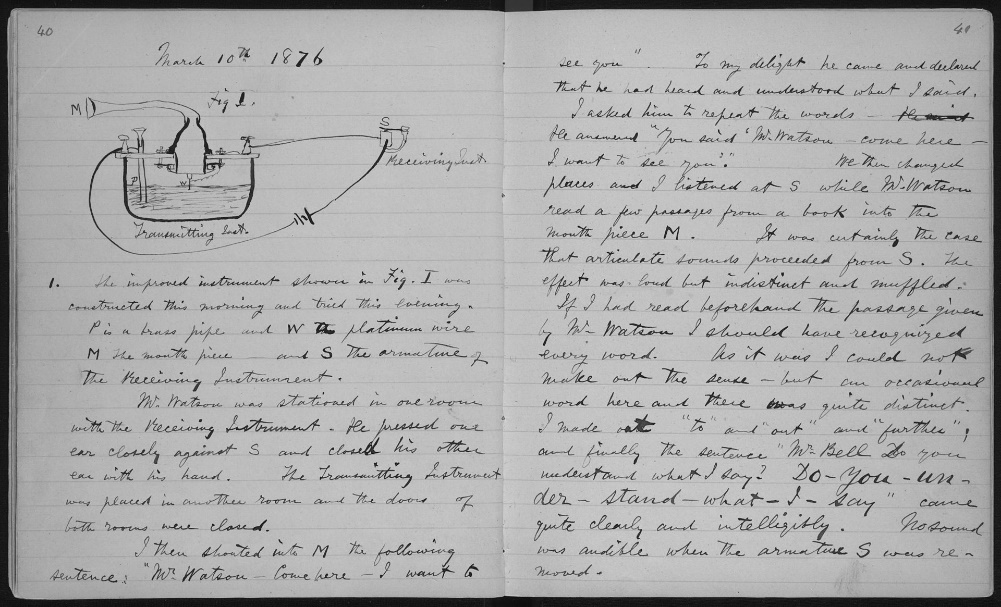 40
March 10th 1876
Fig 1.
M
S
Receiving Inst.
P
W
Transmitting Inst.
1. The improved instrument shown in Fig. I was
constructed this morning and tried this evening.
P is a brass pipe and W the platinum wire
M the mouth piece — and S the armature of
the Receiving Instrument.
Mr. Watson was stationed in one room
with the Receiving Instrument. He pressed one
ear closely against S and closed his other
ear with his hand. The Transmitting Instrument
was placed in another room and the doors of
both rooms were closed.
I then shouted into M the following
sentence: "Mr. Watson — Come here — I want to
41
see you". To my delight he came and declared
that he had heard and understood what I said.
I asked him to repeat the words —
He answered "You said 'Mr. Watson — come here —
I want to see you'." We then changed
places and I listened at S while Mr. Watson
read a few passages from a book into the
mouth piece M. It was certainly the case
that articulate sounds proceeded from S. The
effect was loud but indistinct and muffled.
If I had read beforehand the passage given
by Mr. Watson I should have recognized
every word. As it was I could not
make out the sense — but an occasional
word here and there was quite distinct.
I made out "to" and "out" and "further";
and finally the sentence "Mr. Bell Do you
understand what I say? Do–you–un–
der–stand–what–I–say" came
quite clearly and intelligibly. No sound
was audible when the armature S was re–
moved.